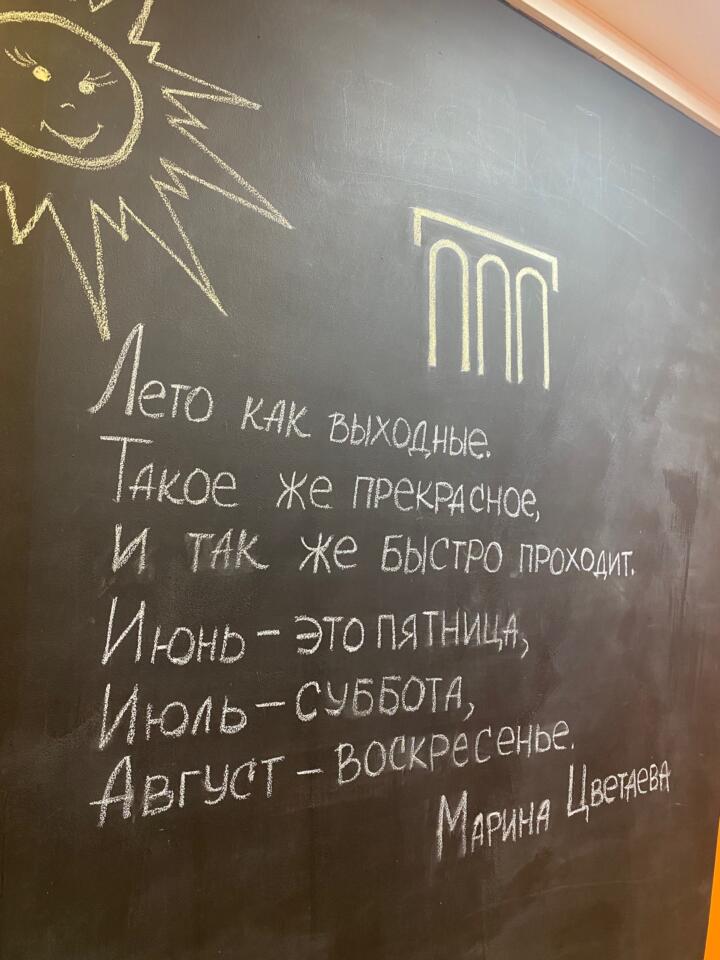 Лето как выходные.
Такое же прекрасное,
И так же быстро проходит.
Июнь – это пятница,
Июль – суббота,
Август – воскресенье.
Марина Цветаева